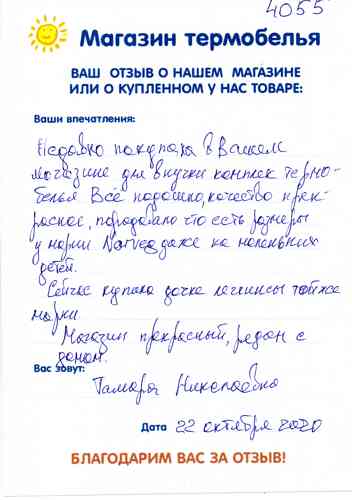 4055
Магазин термобелья
ВАШ ОТЗЫВ О НАШЕМ МАГАЗИНЕ
ИЛИ О КУПЛЕННОМ У НАС ТОВАРЕ:
Ваши впечатления:
Недавно покупала в Вашем
магазине для внучки комплек термо-
белья Всё подошло, качество прек-
расное, порадовало что есть размеры
у марки Norveg даже на маленьких
детей.
Сейчас купила дочке леггинсы той же
марки.
Магазин прекрасный, рядом с
домом.
Вас зовут:
Тамара Николаевна
Дата 22 октября 2020
БЛАГОДАРИМ ВАС ЗА ОТЗЫВ!